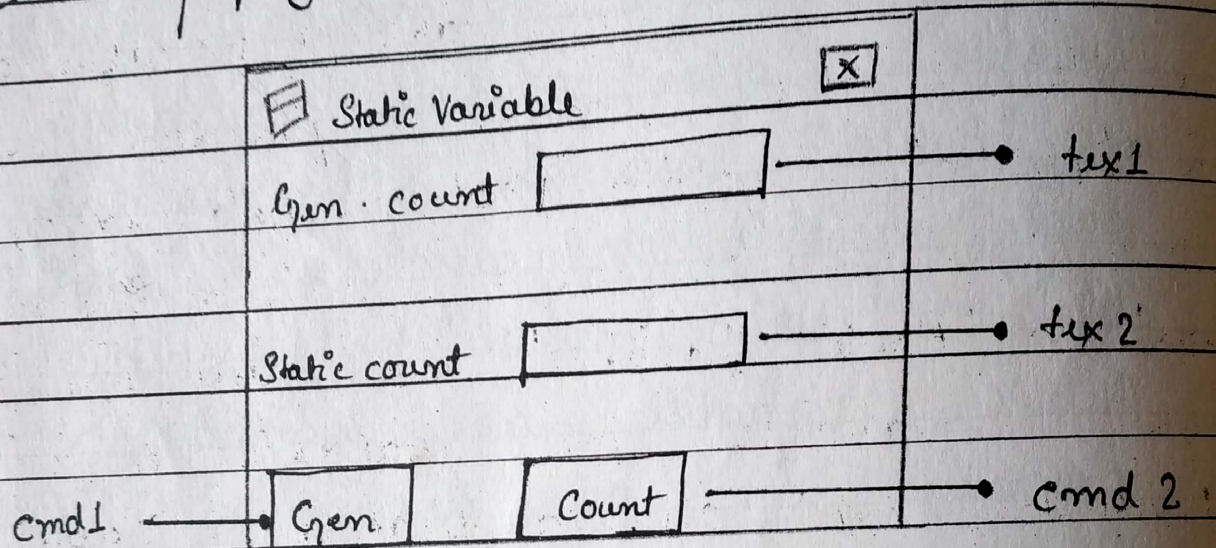 Static Variable X
Gen. count tex1
Static count tex2
cmd1. Gen Count cmd 2